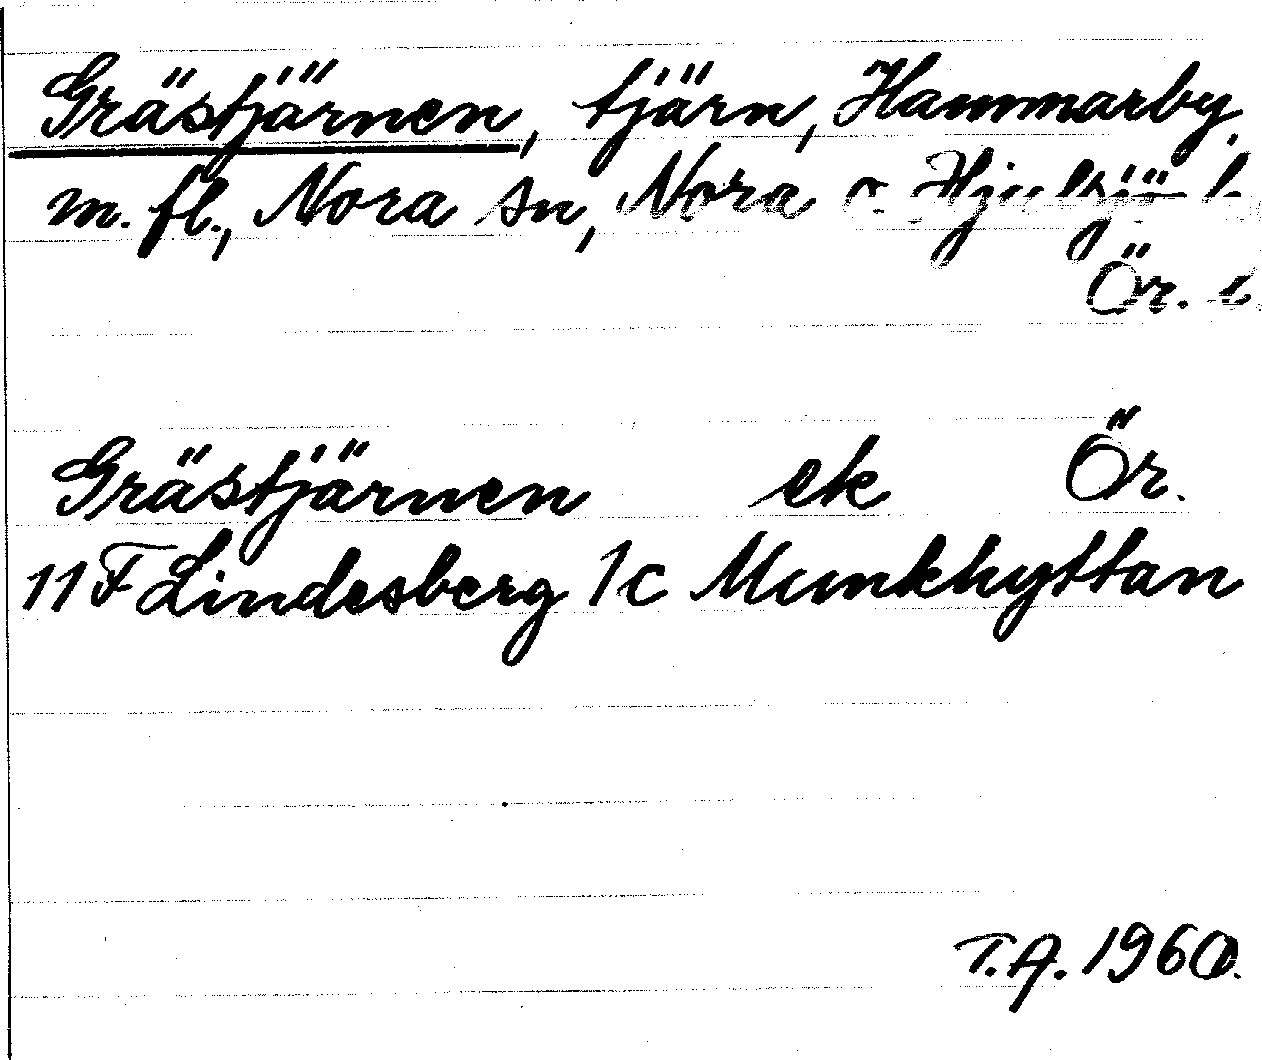 Grästjärnen, tjärn, Hammarby
m. fl., Nora sn, Nora o Hjulsjö b.
Ör. l.
Grästjärnen ek Ör.
11F Lindesberg 1c Munkhyttan
T.A. 1960.